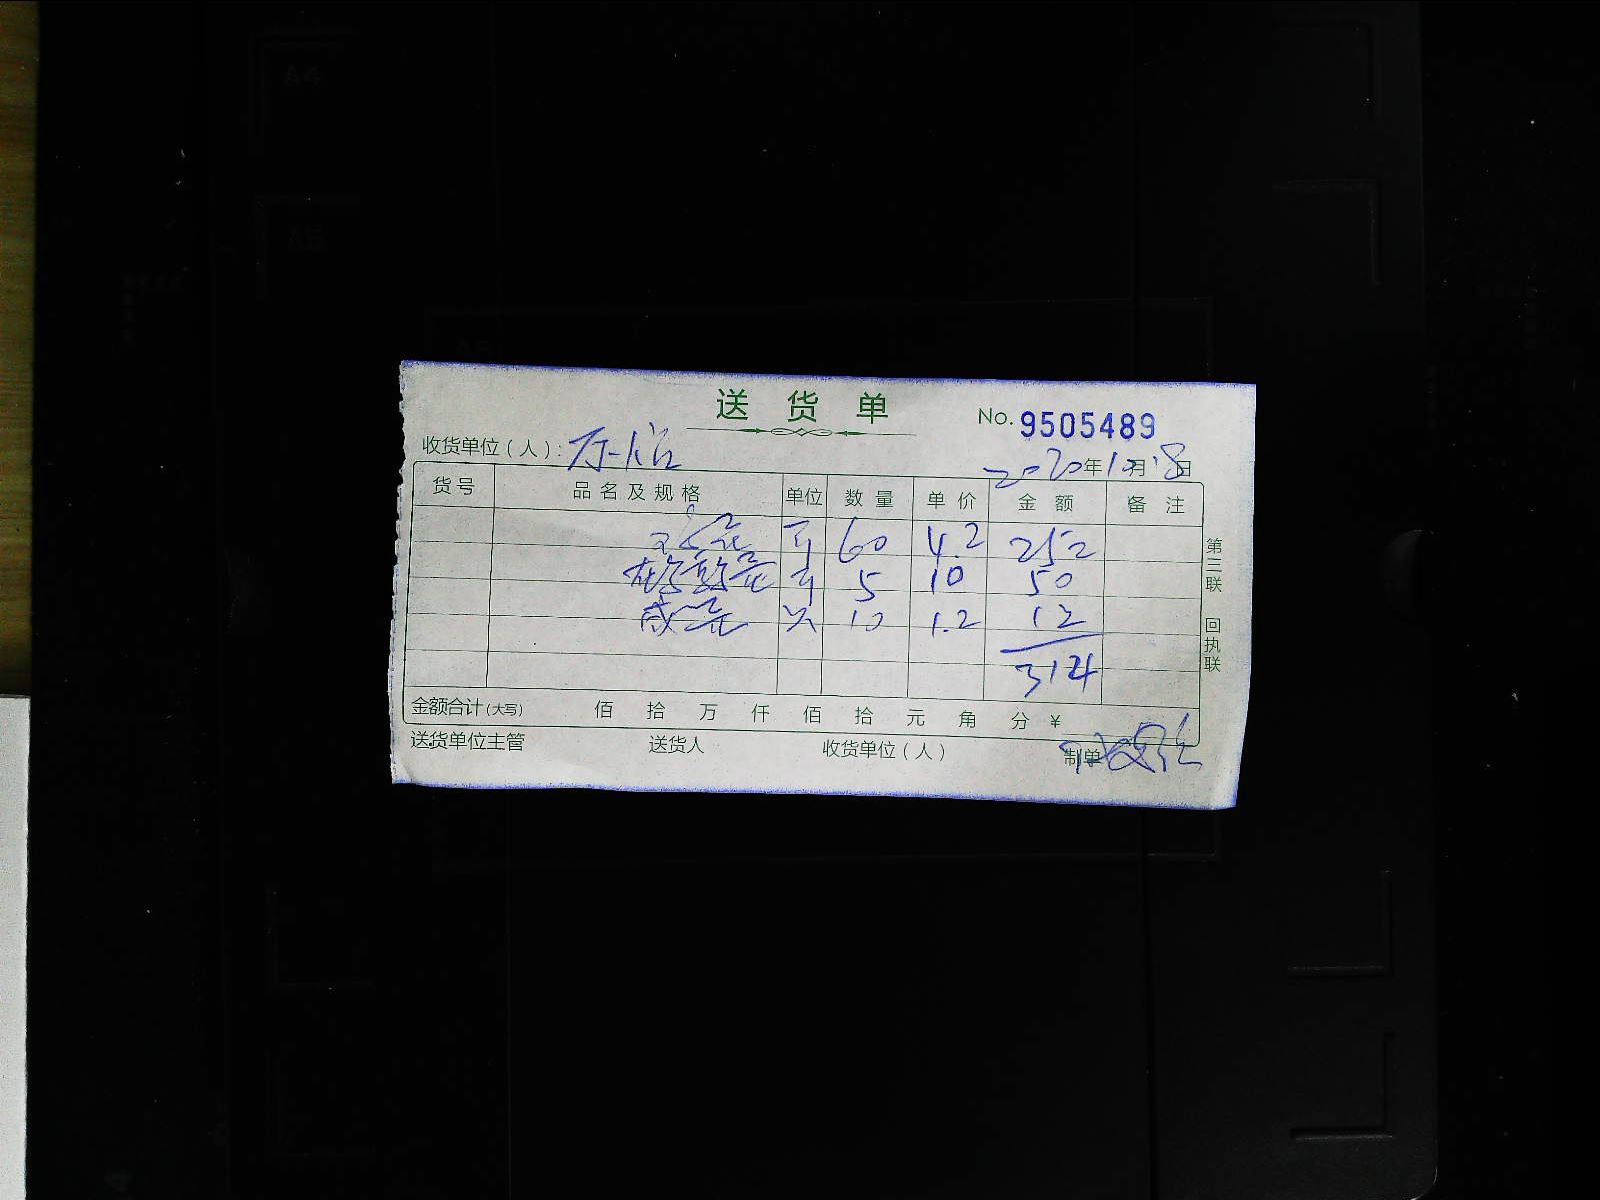 送货单
No. 9505489
收货单位（人）：
2020年10月18日
货号 品名及规格 单位 数量 单价 金额 备注
斤 60 4.2 252
斤 5 10 50
咸蛋 只 10 1.2 12
314
金额合计（大写） 佰 拾 万 仟 佰 拾 元 角 分 ¥
送货单位主管 送货人 收货单位（人） 制单
第三联 回执联